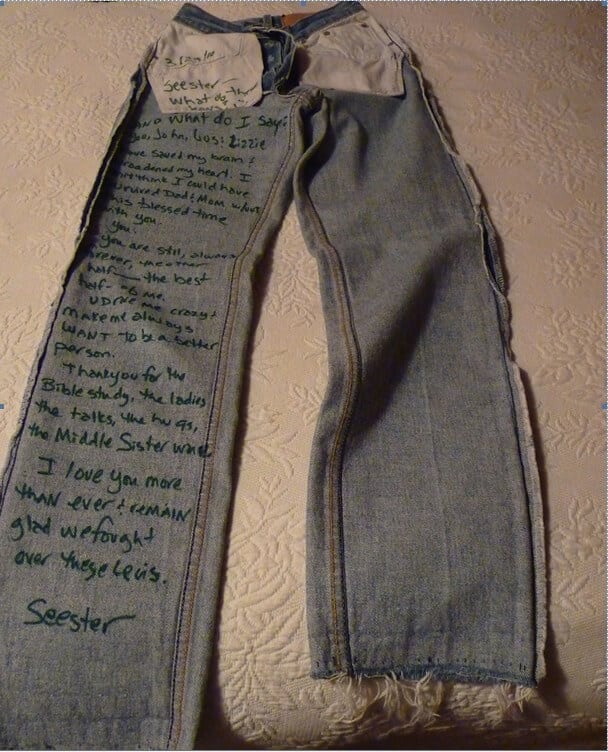 Seester-
What do
AND What do I say?
John, Gus & Lizzie
saved my brain &
my heart. I
think I could have
Dad & Mom w/out
blessed time
with you.
you.
you are still, always
the other
half — the best
half - of me.
U Drive me crazy &
make me always
WANT to be a better
person.
Thank you for the
Bible study, the ladies
the talks, the hugs,
the Middle Sister wine.
I love you more
THAN ever & REMAIN
glad we fought
over these Levis.
Seester